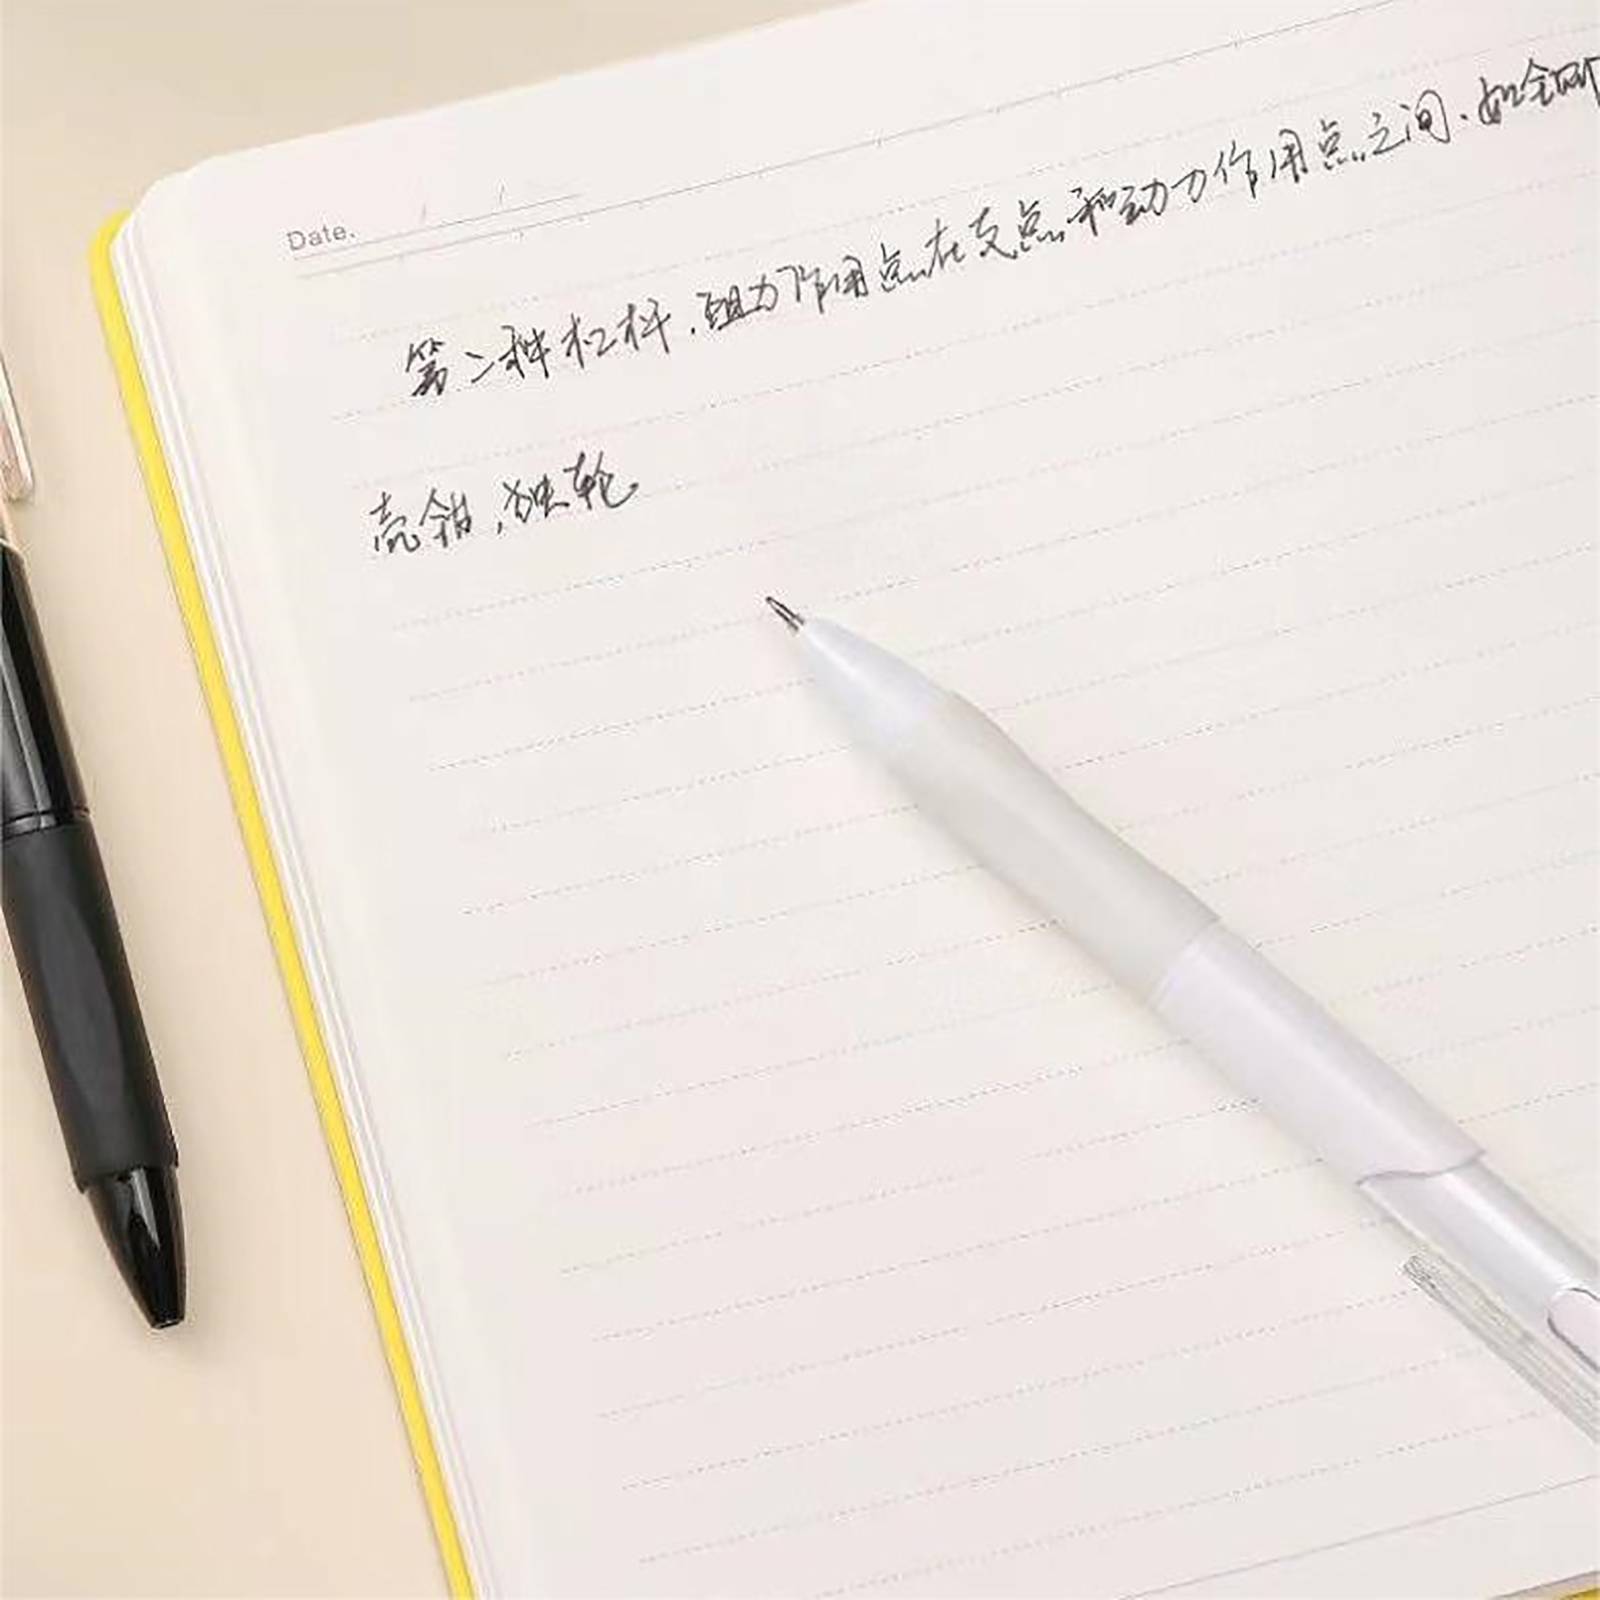 Date. / /
第二种杠杆,阻力作用点在支点和动力作用点之间.如全
壳钳,独轮